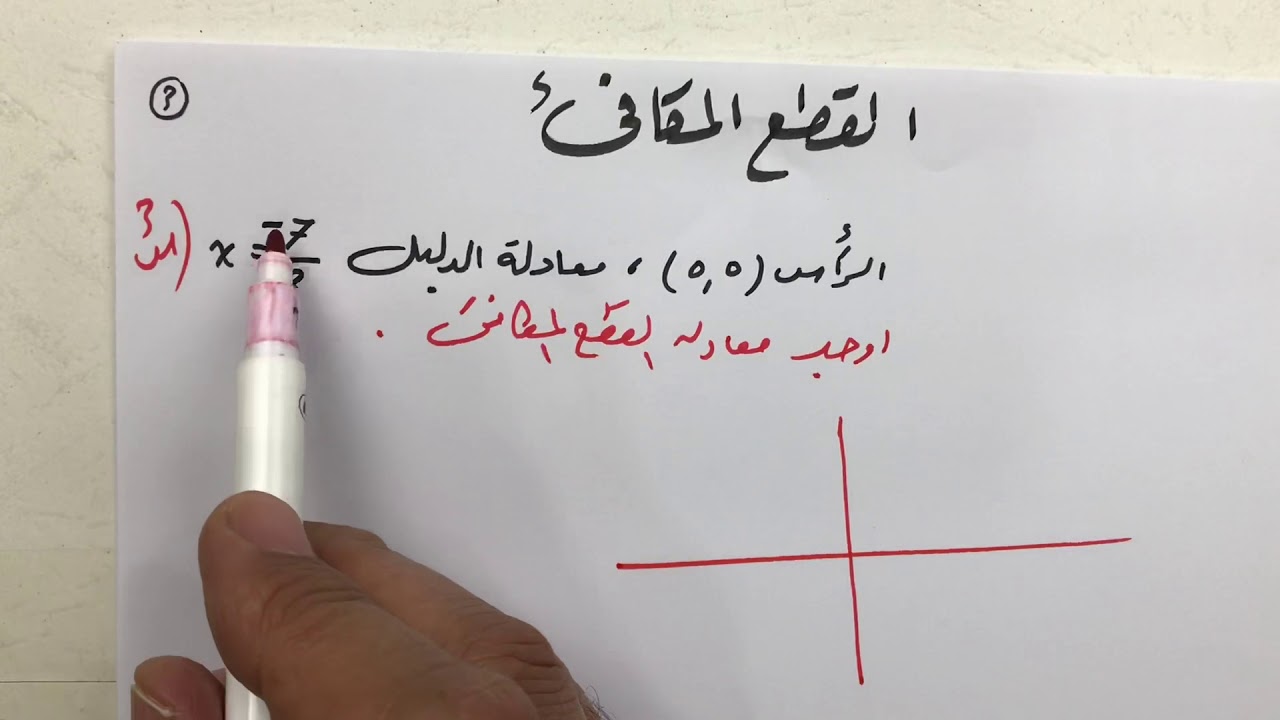 القطع المكافئ
الرأس (٥,٥) ، معادلة الدليل x = -7
اوجد معادلة القطع المكافئ .